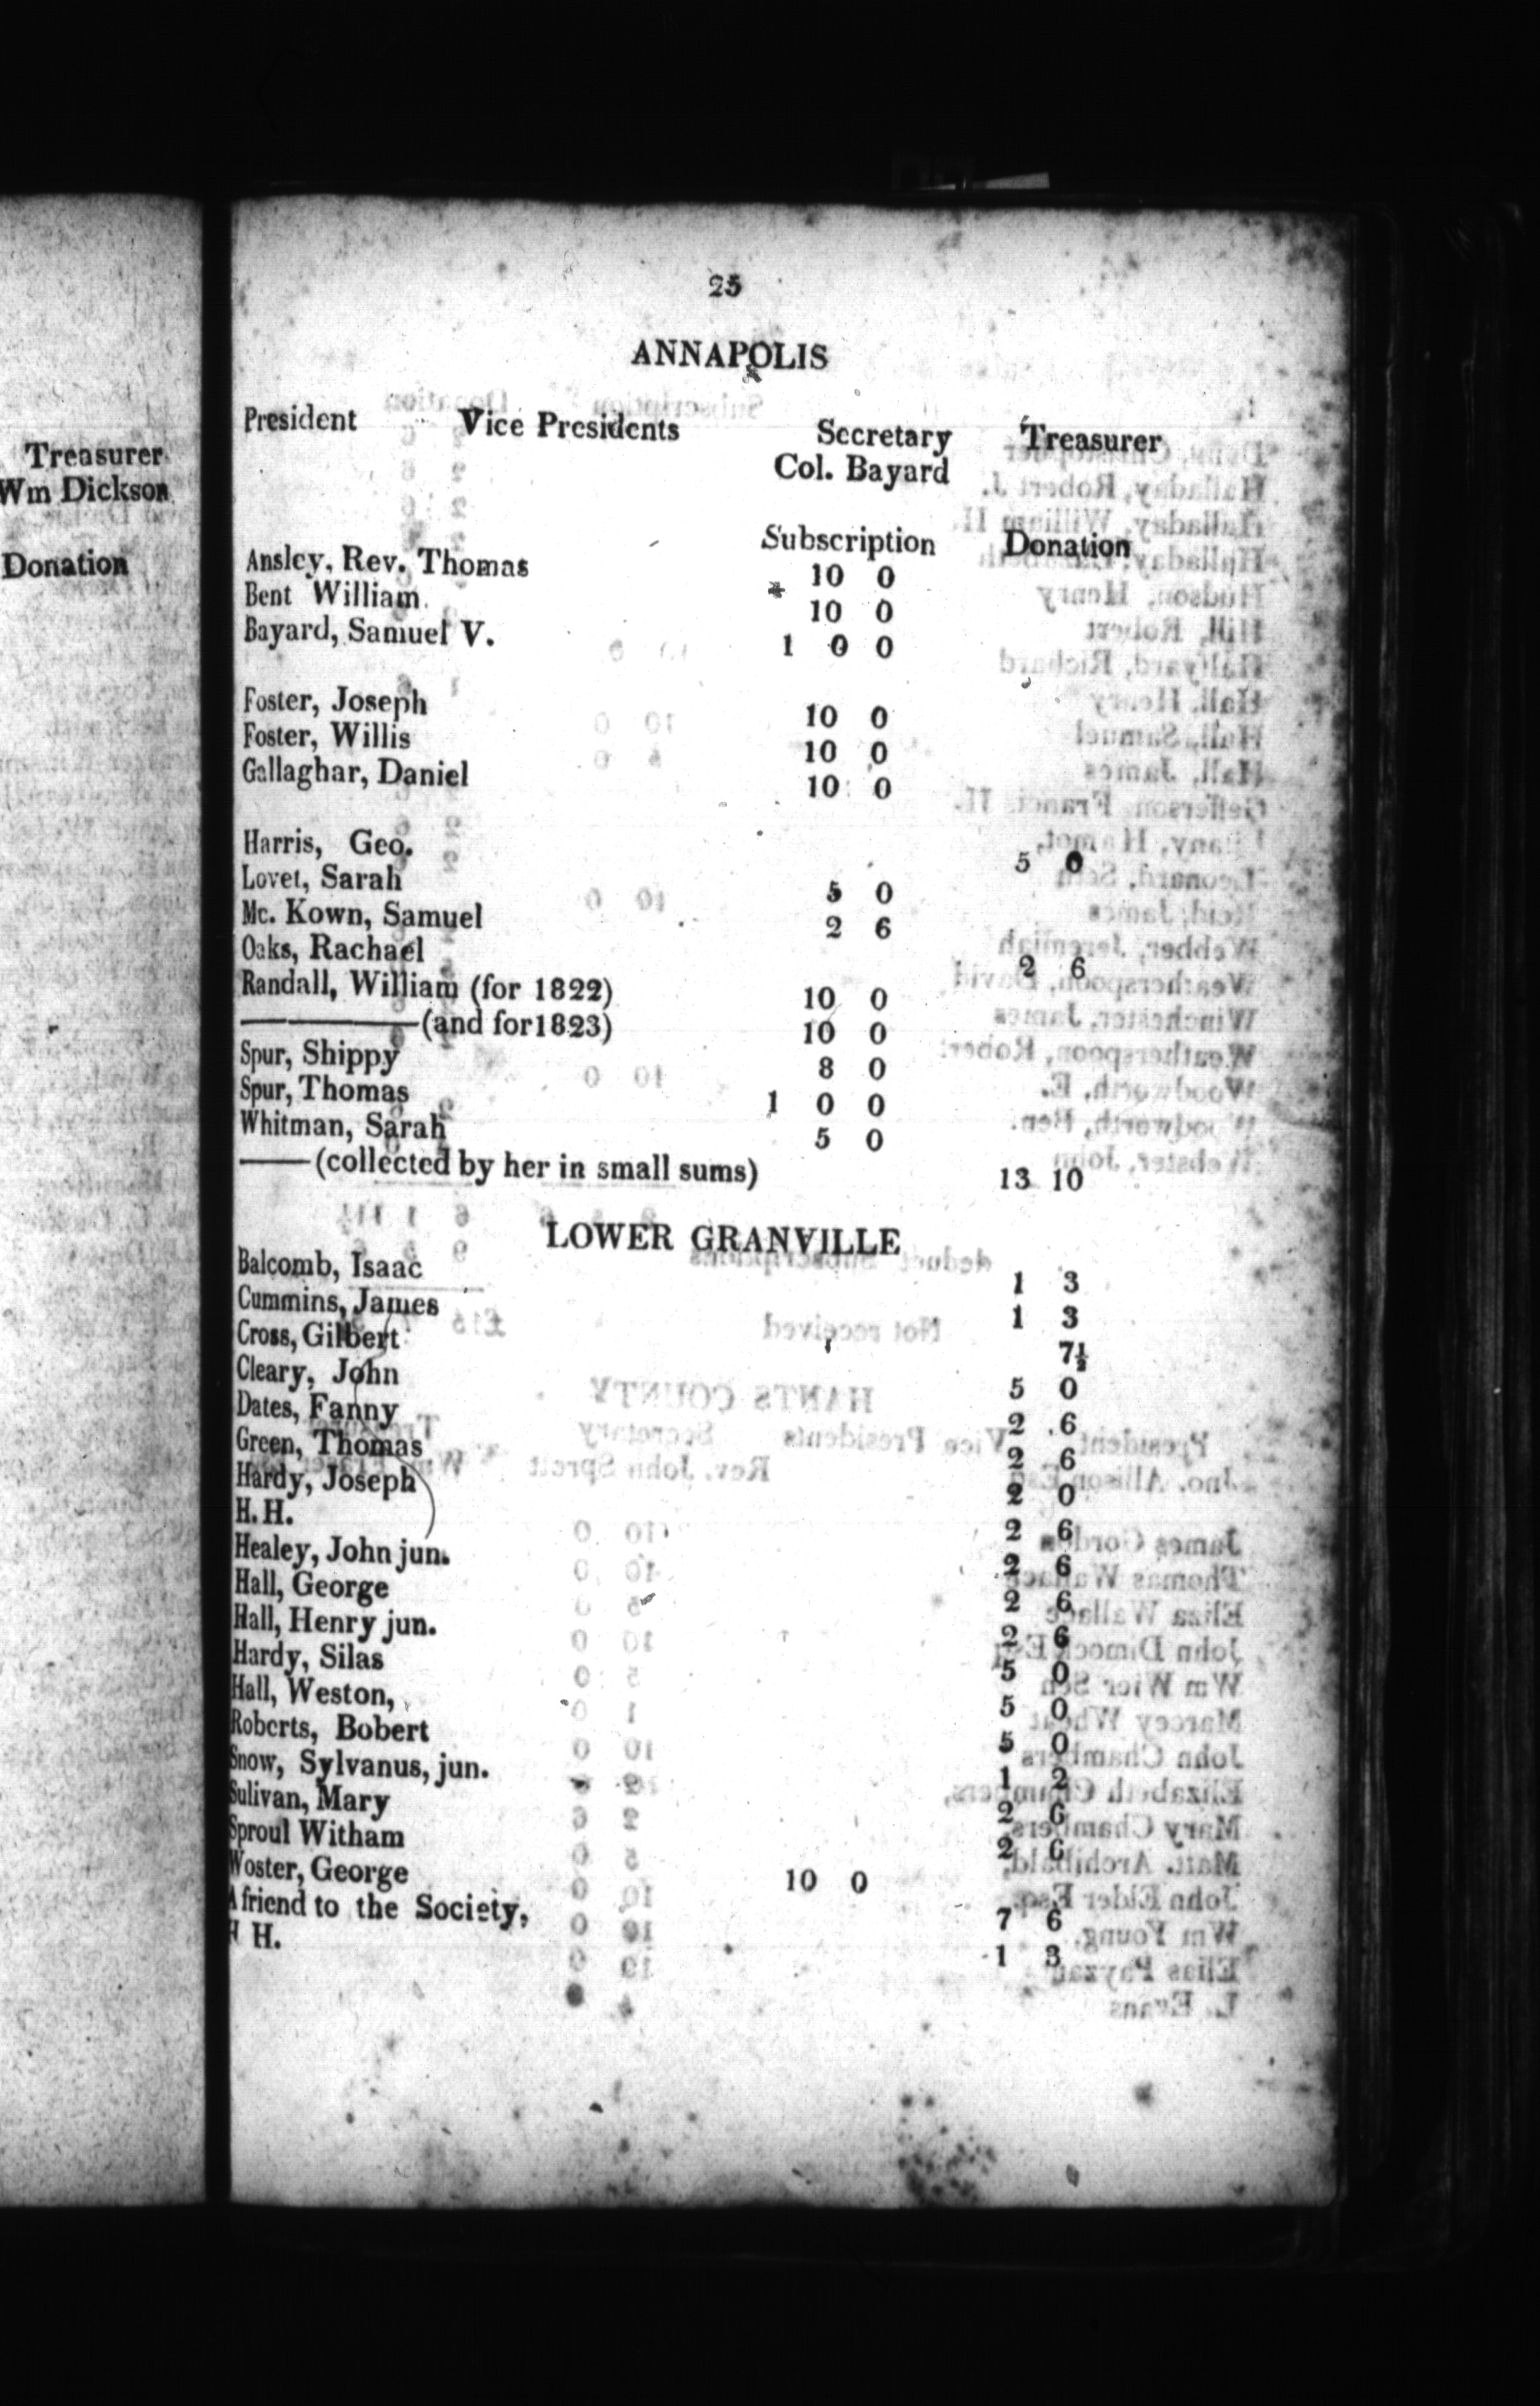 Treasurer
Wm Dickson
Donation
25
ANNAPOLIS
President Vice Presidents Secretary Treasurer
Col. Bayard
Subscription Donation
Ansley, Rev. Thomas 10 0
Bent William 10 0
Bayard, Samuel V. 1 0 0
Foster, Joseph 10 0
Foster, Willis 10 0
Gallaghar, Daniel 10 0
Harris, Geo. 5 0
Lovet, Sarah 5 0
Mc. Kown, Samuel 2 6
Oaks, Rachael 2 6
Randall, William (for 1822) 10 0
———(and for1823) 10 0
Spur, Shippy 8 0
Spur, Thomas 1 0 0
Whitman, Sarah 5 0
——(collected by her in small sums) 13 10
LOWER GRANVILLE
Balcomb, Isaac 1 3
Cummins, James 1 3
Cross, Gilbert 7½
Cleary, John 5 0
Dates, Fanny 2 6
Green, Thomas 2 6
Hardy, Joseph 2 0
H. H. 2 6
Healey, John jun. 2 6
Hall, George 2 6
Hall, Henry jun. 2 6
Hardy, Silas 5 0
Hall, Weston, 5 0
Roberts, Bobert 5 0
Snow, Sylvanus, jun. 1 2
Sulivan, Mary 2 6
Sproul Witham 2 6
Woster, George 10 0
A friend to the Society, 7 6
H H. 1 3